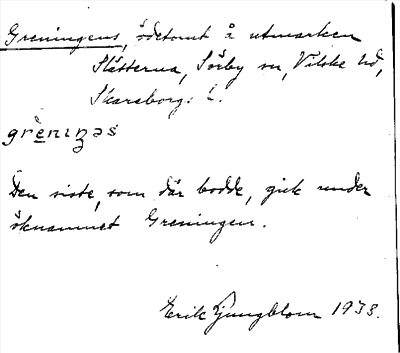 Greningens, ödetomt å utmarken
Slätterna, Sörby sn, Vilske hd,
Skaraborgs l.
grèniŋəs
Den siste, som där bodde, gick under
öknamnet Greningen.
Erik Ljungblom 1938.